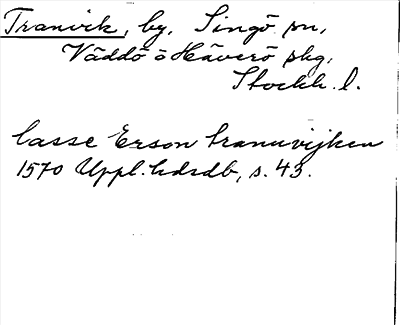 Tranvik, by, Singö sn,
Väddö o Häverö skg,
Stockh. l.
lasse Erson tranuvijken
1570 Uppl. hdrdb, s. 43.